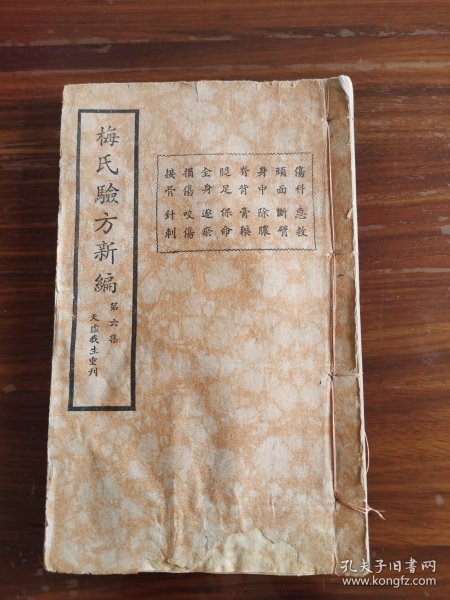 傷科 急救
頭面 斷臂
身中 除膿
脊背 膏藥
腿足 保命
全身 逐瘀
損傷 咬傷
接骨 針刺
梅氏驗方新編
第六集
天虛我生重刊
孔夫子旧书网
www.kongfz.com